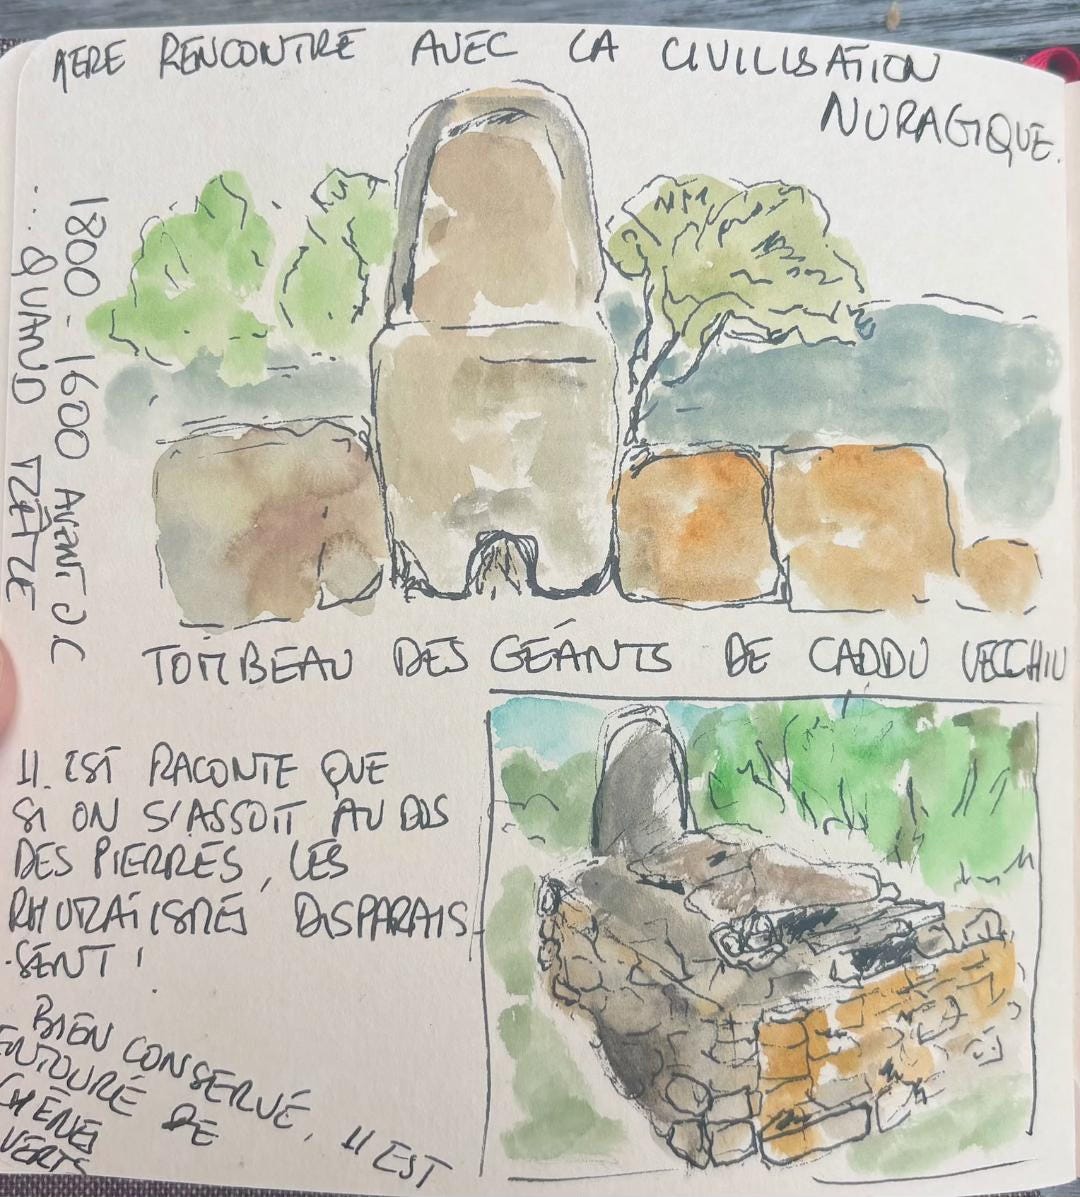 1ERE RENCONTRE AVEC LA CIVILISATION
NURAGIQUE.
1800 - 1600 AVENT J.C
... QUAND MÊME
TOMBEAU DES GÉANTS DE CADDU VECCHIU
IL EST RACONTE QUE
SI ON S'ASSOIT AU DOS
DES PIERRES, LES
RHUMATISMES DISPARAIS
SENT !
BIEN CONSERVÉ, IL EST
ENTOURÉ DE
CHÊNES
VERTS